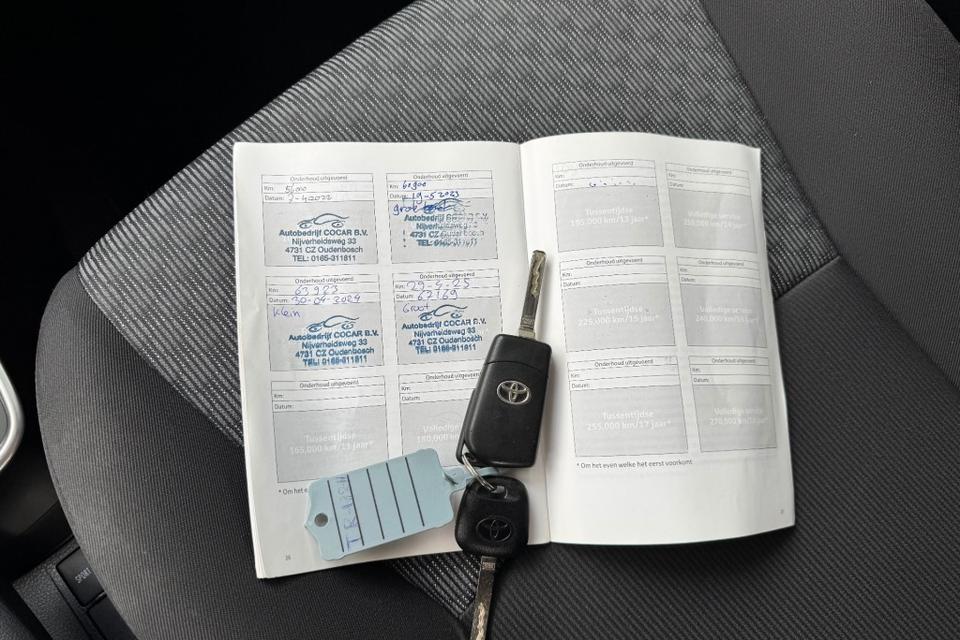 Onderhoud uitgevoerd
Km:
Datum: 7-4-2022
Autobedrijf COCAR B.V.
Nijverheidsweg 33
4731 CZ Oudenbosch
TEL: 0165-311811
Onderhoud uitgevoerd
Km:
Datum: 19-5 2023
Autobedrijf
Nijverheidsweg
4731 CZ Oudenbosch
TEL: 0165-311811
Onderhoud uitgevoerd
Km: 63923
Datum: 30-04-2024
Klein
Autobedrijf COCAR B.V.
Nijverheidsweg 33
4731 CZ Oudenbosch
TEL: 0165-311811
Onderhoud uitgevoerd
Km: 29-4-25
Datum: 67169
Groot
Autobedrijf COCAR B.V.
Nijverheidsweg 33
4731 CZ Oudenbosch
TEL: 0165-311811
Onderhoud uitgevoerd
Km:
Datum:
Tussentijdse
165,000 km/11 jaar*
Onderhoud uitgevoerd
Km:
Datum:
Volledige
180,000 km
* Om het e
26
Onderhoud uitgevoerd
Km:
Datum:
Tussentijdse
195,000 km/13 jaar*
Onderhoud uitgevoerd
Km:
Datum:
Volledige service
210,000 km/14 jaar*
Onderhoud uitgevoerd
Km:
Datum:
Tussentijdse
225,000 km/15 jaar*
Onderhoud uitgevoerd
Km:
Datum:
Volledige service
240,000 km/16 jaar*
Onderhoud uitgevoerd
Km:
Datum:
Tussentijdse
255,000 km/17 jaar*
Onderhoud uitgevoerd
Km:
Datum:
Volledige service
270,000 km/18 jaar*
* Om het even welke het eerst voorkomt
SPORT